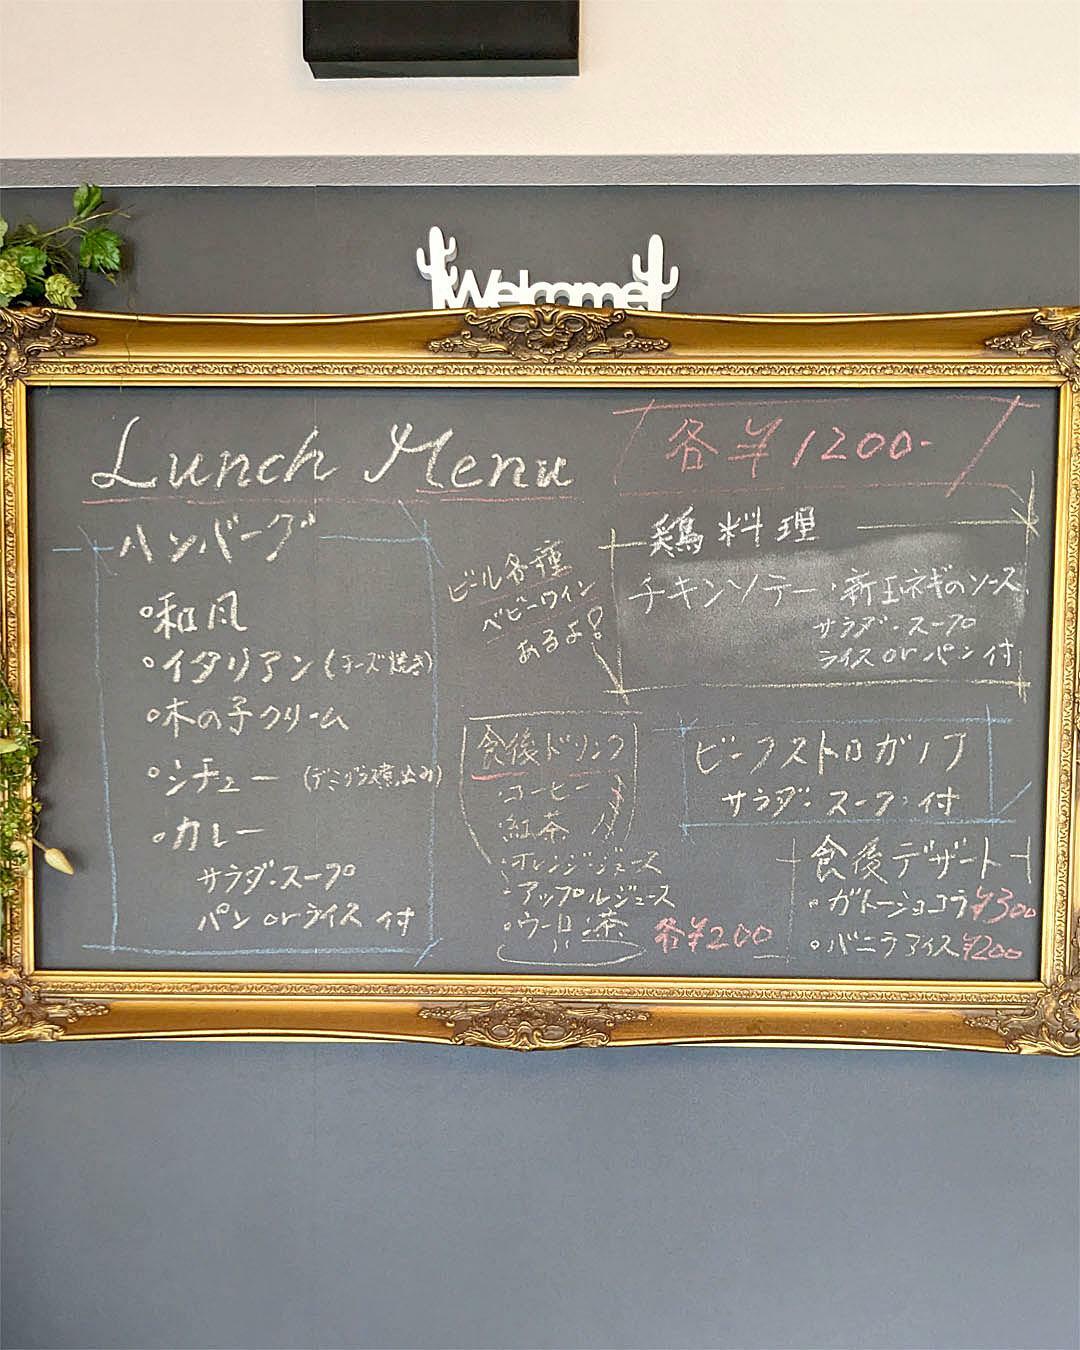 Welcome
Lunch Menu
各¥1200-
ハンバーグ
・和風
・イタリアン(チーズ焼き)
・木の子クリーム
・シチュー(デミグラス煮込み)
・カレー
サラダ・スープ
パン or ライス 付
ビール各種
ベビーワイン
あるよ!
食後ドリンク
・コーヒー
・紅茶
・オレンジジュース
・アップルジュース
・ウーロン茶
各¥200
鶏料理
チキンソテー・新玉ネギのソース
サラダ・スープ
ライス or パン 付
ビーフストロガノフ
サラダ・スープ・付
食後デザート
・ガトーショコラ¥300
・バニラアイス¥200